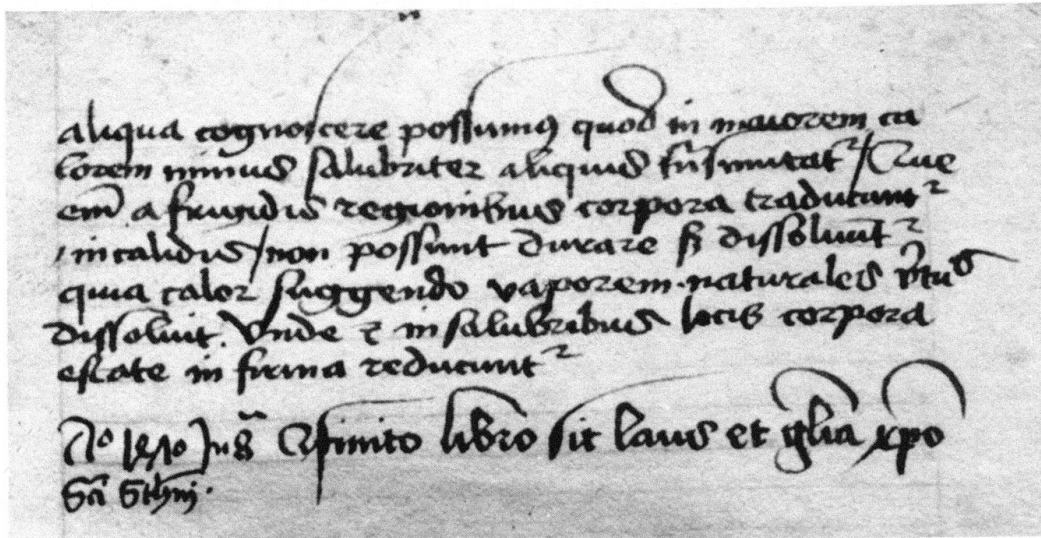 aliqua cognoscere possumꝰ quod in maiorem ca
lorem minus salubriter aliquis tn̄smutatᷣ / Que
em̄ a frigidis regionibus corpora traducuntᷣ
/ in calidis / non possunt durare sꝫ dissoluūtᷣ
quia calor suggendo vaporem naturales v̄tu⁹
dissoluit. Vnde ⁊ in salubribus locis corpora
estate in firma reducuntᷣ
Aº finito libro sit laus et gl̄ia xp̄o
Sc̄i